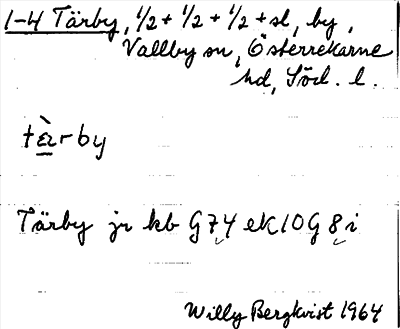 1-4 Tärby, 1/2 + 1/2 + 1/2 + sl, by,
Vallby sn, Österrekarne
hd, Söd. l.
tæ̀rby
Tärby jr kb G74 ek10G8i
Willy Bergkvist 1964